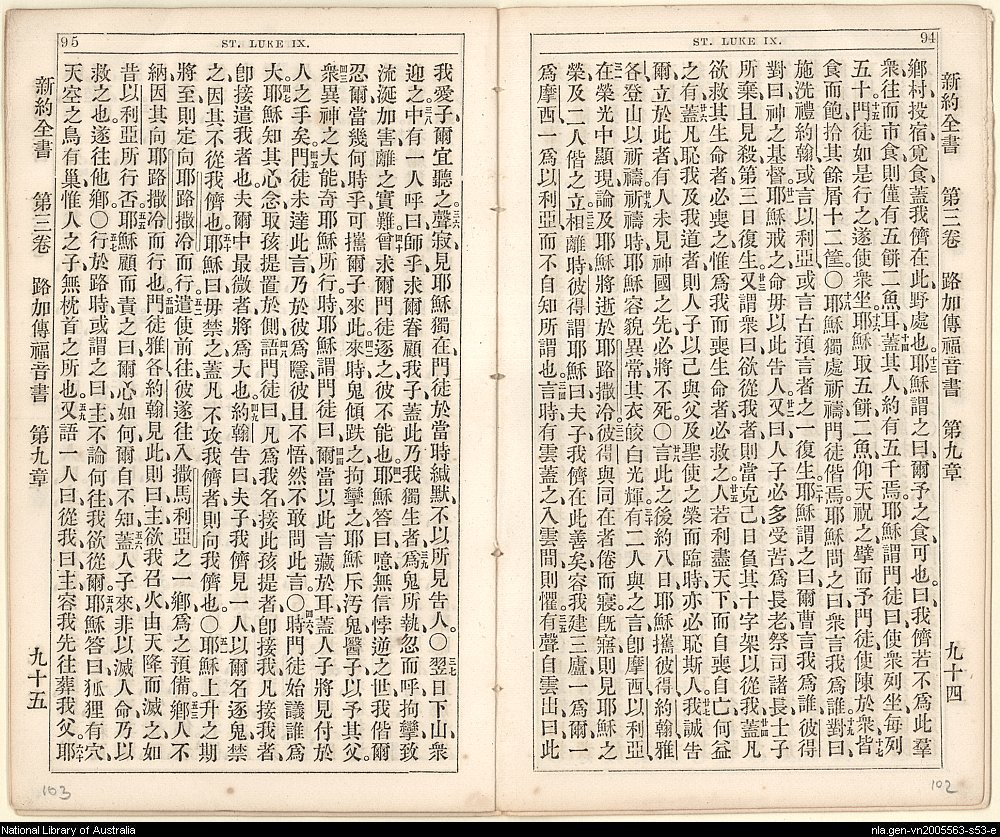 94
ST. LUKE IX.
新約全書 第三卷 路加傳福音書 第九章 九十四
鄉村投宿覓食、蓋我儕在此野處也。十三耶穌謂之曰、爾予之食可也。曰、我儕若不爲此羣
衆往而市食、則僅有五餅二魚耳、十四蓋其人約有五千焉。耶穌謂門徒曰、使衆列坐、每列
五十。十五門徒如是行之、遂使衆坐。十六耶穌取五餅二魚、仰天祝之、擘而予門徒、使陳於衆。十七皆
食而飽、拾其餘屑十二筐。○十八耶穌獨處祈禱、門徒偕焉、耶穌問之曰、衆言我爲誰。十九對曰、
施洗禮約翰、或言以利亞、或言古預言者之一復生。二十耶穌謂之曰、爾曹言我爲誰。彼得
對曰、神之基督。廿一耶穌戒之、命毋以此告人。廿二又曰、人子必多受苦、爲長老祭司諸長士子
所棄、且見殺、第三日復生。廿三又謂衆曰、欲從我者、則當克己、日負其十字架以從我。廿四蓋凡
欲救其生命者、必喪之、惟爲我而喪生命者、必救之。廿五人若利盡天下、而自喪自亡、何益
之有。廿六蓋凡恥我及我道者、則人子以己與父及聖使之榮而臨時、亦必恥斯人。廿七我誠告
爾、立於此者、有人未見神國之先、必將不死。○廿八言此之後、約八日、耶穌攜彼得約翰雅
各登山以祈禱。廿九祈禱時、耶穌容貌異常、其衣皎白光輝。三十有二人與之言、卽摩西以利亞、
三一在榮光中顯現、論及耶穌將逝於耶路撒冷。三二彼得與同在者倦而寢、旣寤、則見耶穌之
榮、及二人偕之立。三三相離時、彼得謂耶穌曰、夫子、我儕在此善矣、容我建三廬、一爲爾、一
爲摩西、一爲以利亞、而不自知所謂也。三四言時、有雲蓋之、入雲間則懼。三五有聲自雲出曰、此
102
95
ST. LUKE IX.
我愛子、爾宜聽之。三六聲寂、見耶穌獨在、門徒於當時緘默、不以所見告人。○三七翌日下山、衆
迎之。三八中有一人呼曰、師乎、求爾眷顧我子、蓋此乃我獨生者。三九爲鬼所執、忽而呼、拘攣致
流涎、加害離之實難。四十曾求爾門徒逐之、彼不能也。四一耶穌答曰、噫、無信悖逆之世、我偕爾
忍爾、當幾何時乎、可攜爾子來此。四二來時、鬼傾跌之、拘攣之、耶穌斥汚鬼、醫子以予其父。
四三衆異神之大能、奇耶穌所行、時耶穌謂門徒曰、四四爾當以此言藏於耳、蓋人子將見付於
人之手矣。四五門徒未達此言、乃於彼爲隱、彼且不悟、然不敢問此言。○四六時、門徒始議誰爲
大。四七耶穌知其心念、取孩提置於側、語門徒曰、四八凡爲我名接此孩提者、卽接我、凡接我者、
卽接遣我者也、夫爾中最微者、將爲大也。四九約翰告曰、夫子、我儕見一人、以爾名逐鬼、禁
之、因其不從我儕也。五十耶穌曰、毋禁之、蓋凡不攻我儕者、則向我儕也。○五一耶穌上升之期
將至、則定向耶路撒冷而行、五二遣使前往、彼遂往入撒馬利亞之一鄉、爲之預備。五三鄉人不
納、因其向耶路撒冷而行也。五四門徒雅各約翰見此、則曰、主欲我召火由天降而滅之、如
昔以利亞所行否。五五耶穌顧而責之曰、爾心如何、爾自不知。五六蓋人子來、非以滅人命、乃以
救之也、遂往他鄉。○五七行於路時、或謂之曰、主不論何往、我欲從爾。五八耶穌答曰、狐狸有穴、
天空之鳥有巢、惟人之子無枕首之所也。五九又語一人曰、從我、曰、主、容我先往葬我父。六十耶
新約全書 第三卷 路加傳福音書 第九章 九十五
103
National Library of Australia
nla.gen-vn2005563-s53-e